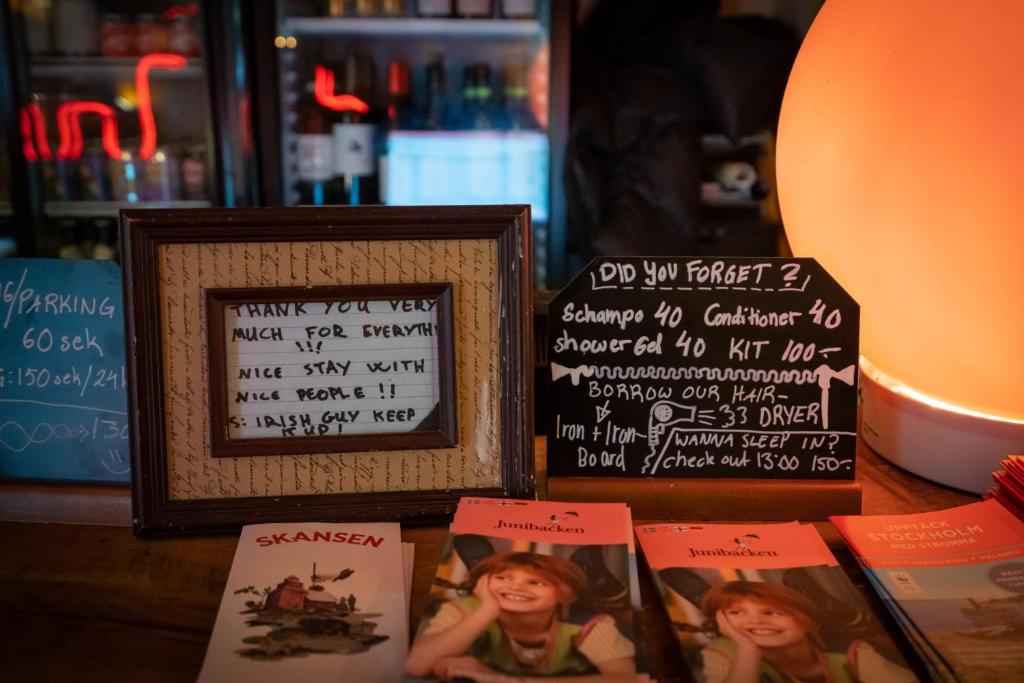 /PARKING
60 sek
:150 sek/24h
THANK YOU VERY
MUCH FOR EVERYTHI
!!!
NICE STAY WITH
NICE PEOPLE !!
S: IRISH GUY KEEP
IT UP!
DID YOU FORGET ?
Schampo 40 Conditioner 40
shower Gel 40 KIT 100:-
BORROW OUR HAIR-
DRYER
Iron + Iron-
Board
WANNA SLEEP IN?
check out 13:00 150:-
SKANSEN
Junibacken
Junibacken
UPPTÄCK
STOCKHOLM
MED STROMMA